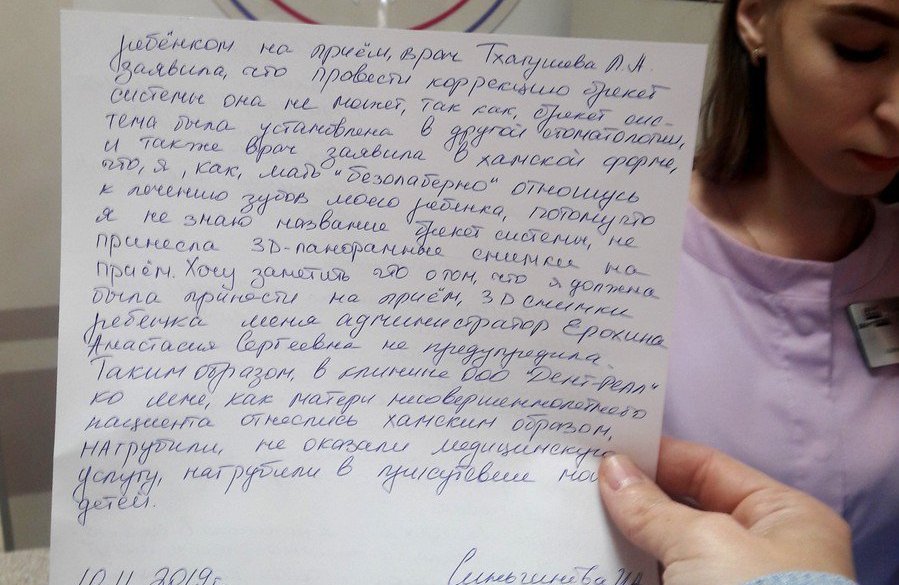 ребёнком на приём, врач Тхагушева Л.А.
заявила, что провести коррекцию брекет
системы она не может, так как, брекет сис-
тема была установлена в другой стоматологии,
и также врач заявила в хамской форме,
что, я, как, мать "безолаберно" отношусь
к лечению зубов моего ребёнка, потому что
я не знаю название брекет системы, не
принесла 3D-панорамные снимки на
приём. Хочу заметить что о том, что я должна
была принести на приём, 3D снимки
ребёнка меня администратор Ерохина
Анастасия Сергеевна не предупредила.
Таким образом, в клинике ООО "Дент-Релл"
ко мне, как матери несовершеннолетнего
пациента отнеслись хамским образом,
нагрубили, не оказали медицинскую
услугу, нагрубили в присутствие мо
детей.
10.11.2019г.